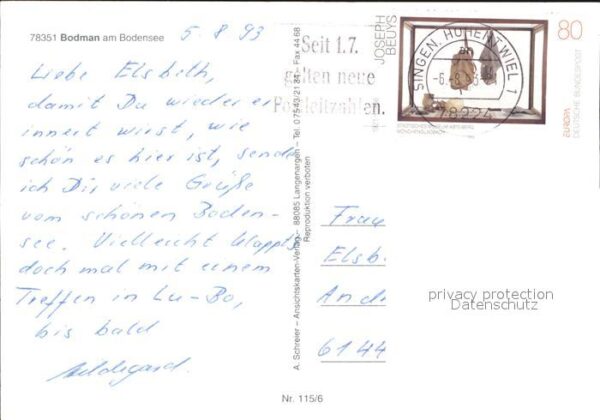 78351 Bodman am Bodensee
5.8.93
Liebe Elsbeth,
damit Du wieder er
innert wirst, wie
schön es hier ist, sende
ich Dir viele Grüße
vom schönen Boden-
see. Vielleicht klappts
doch mal mit einem
Treffen in Lu-Bo,
bis bald
Hildegard.
A. Schreier – Ansichtskarten-Verlag – 88085 Langenargen – Tel. 07543/2184 – Fax 44 68
Reproduktion verboten
Nr. 115/6
Seit 1.7.
gelten neue
Postleitzahlen.
JOSEPH
BEUYS
80
EUROPA
DEUTSCHE BUNDESPOST
SINGEN, HOHENTWIEL 1
-6.-8.93
78224
Frau
Elsb
And
6144
privacy protection
Datenschutz